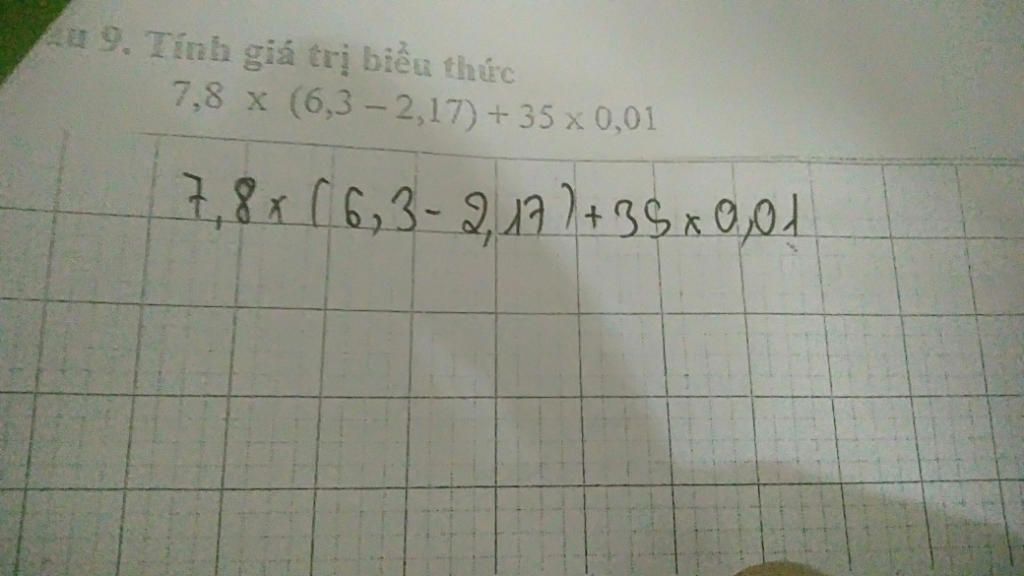 9. Tính giá trị biểu thức
7,8 x (6,3 – 2,17) + 35 x 0,01
7,8 x (6,3 - 2,17) + 35 x 0,01